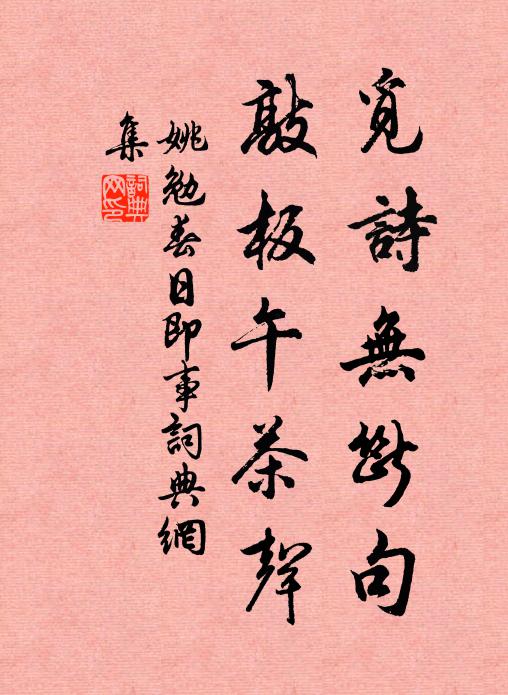 覓詩無斷句
敲板午茶聲
姚勉春日即事詞典網
集
詞典网印